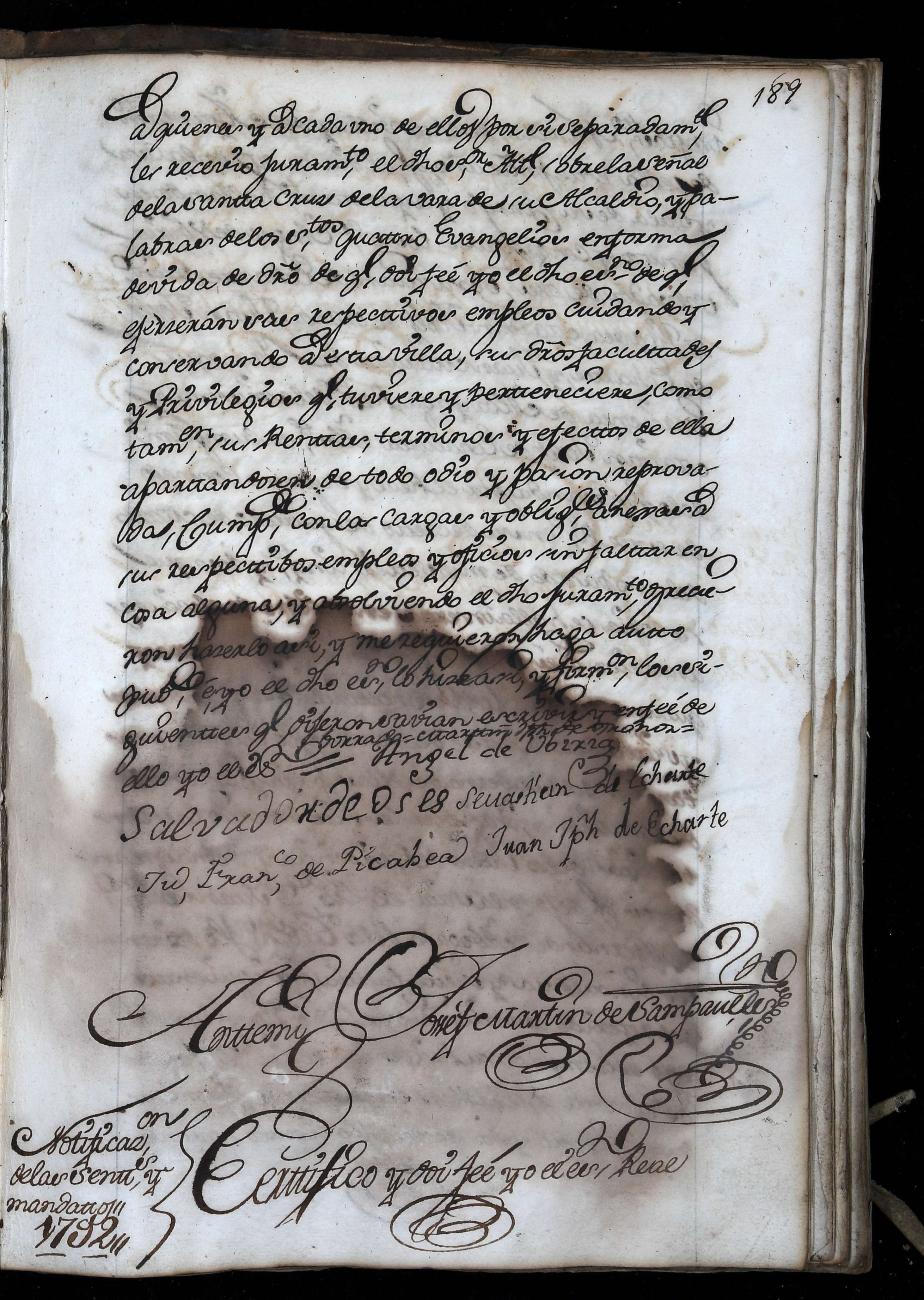 189
a quienes y a cada vno de ellos por si separadam.te
les recevio juram.to, el dho s.or Al.e, sobre la señal
de la santta Cruz de la vara de su Alcaldio, y pa-
labras de los s.tos quattro Evangelios en forma
devida de dro de q.e doi feé yo el dho es.no de q.e
ejerzerán sus respectivos empleos cuidando y
conservando a esta villa, sus dros facultades
y Privilegios q.e tuviere y pertteneciere, como
tam.en sus Renttas, terminos y efecttos de ella
aparttandosen de todo odio y pasion reprova-
da, Cumpd.o con las cargas y oblig.es anexas a
sus respecttibos empleos y oficios sin falttar en
cosa alguna, y absolviendo el dho juram.to ofrecie-
ron hazerlo asi, y me requirieron haga autto
pub.co, é yo el dho es.no lo hize asi, y firm.on los si-
guienttes q.e dijeron savian escrivir y en feé de
ello yo el es.no
Angel de Vbiria
Salvador de Oses Sevastian de Echarte
Fran.co de Picabea Juan Jph de Echarte
Anttemy Josef Martin de Sampaul es.no
Notificaz.on
de las Sentt.s y
mandatto
1792
Certtifico y doi feé yo el es.no Real